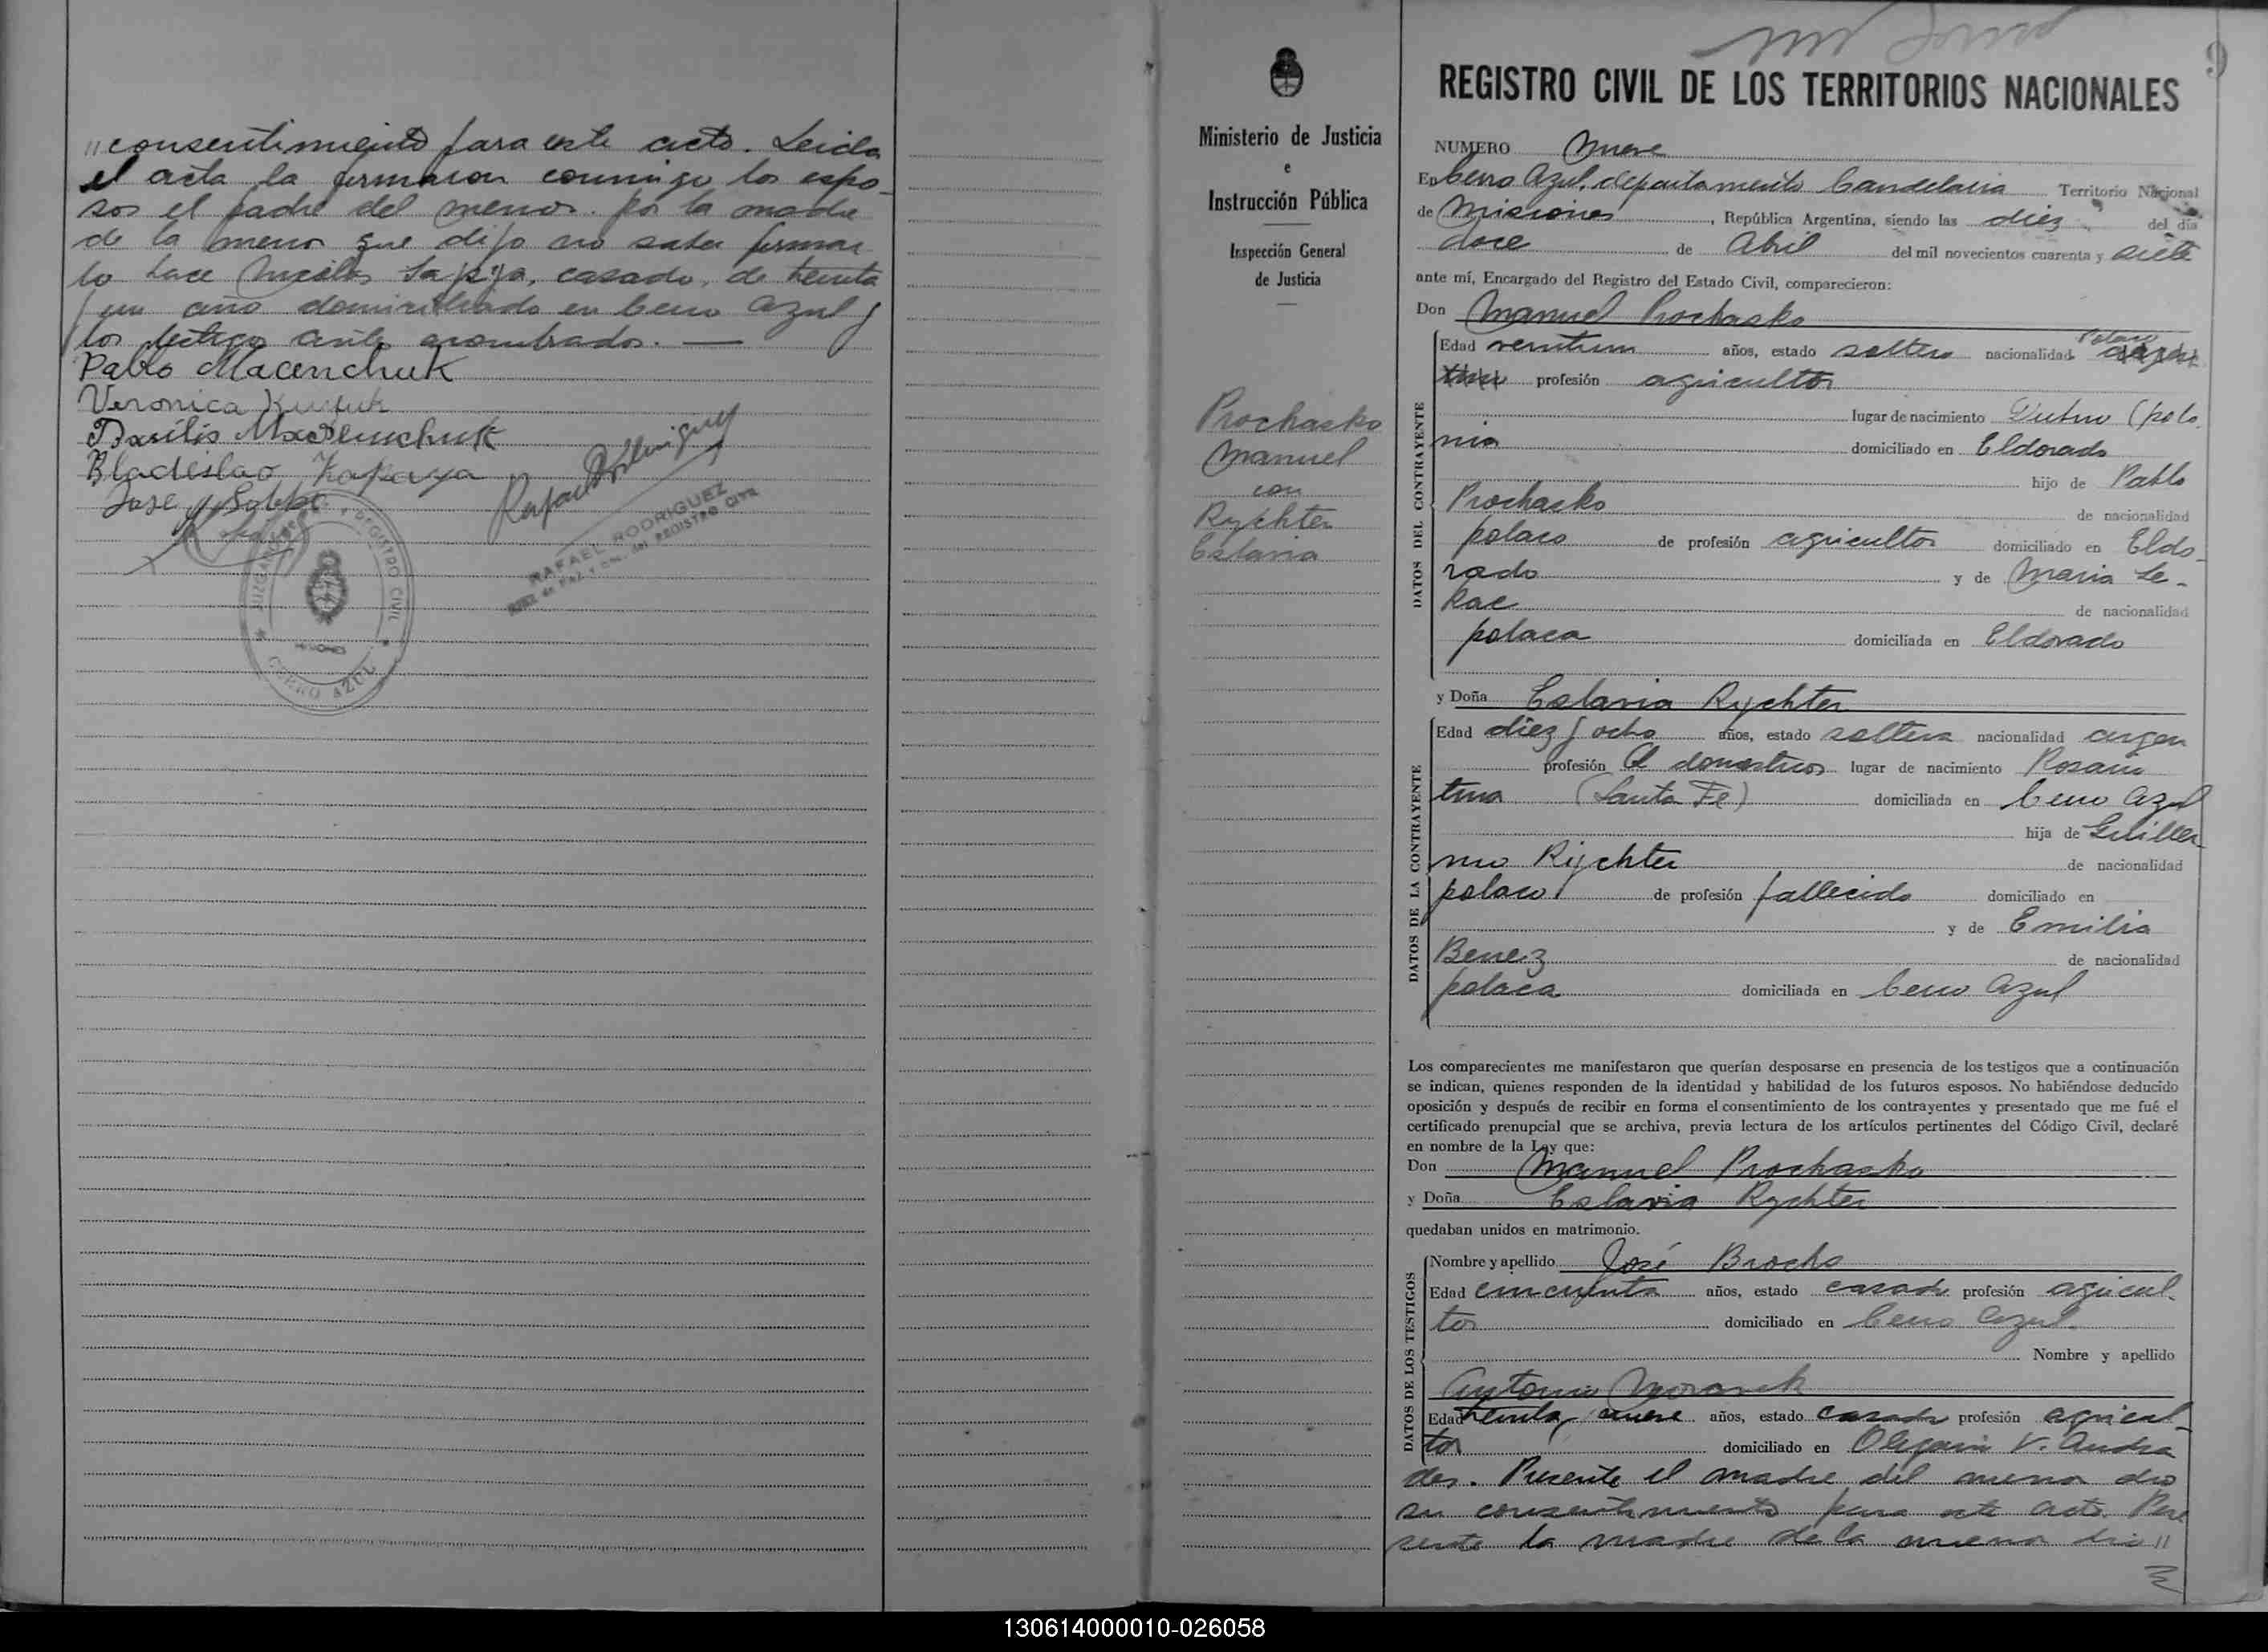 "consentimiento para este acto. Leida
el acta la firmaron conmigo los espo-
sos el padre del menor. por la madre
de la menor que dijo no saber firmar
lo hace Nicolas Sapija, casado, de treinta
y un año domiciliado en Cerro Azul y
los testigos antes nombrados. —
Pablo Macenchuk
Veronica
Basilio
Bladislao Kapaya
Jose
RAFAEL RODRIGUEZ
JUEZ de PAZ Y ENC. del REGISTRO CIVIL
JUZGADO DE PAZ Y REGISTRO CIVIL
MISIONES
CERRO AZUL
Ministerio de Justicia
e
Instrucción Pública
Inspección General
de Justicia
Prochasko
Manuel
con
Rychter
Eslavia
9
REGISTRO CIVIL DE LOS TERRITORIOS NACIONALES
NUMERO Nueve
En Cerro Azul, departamento Candelaria Territorio Nacional
de Misiones, República Argentina, siendo las diez del día
doce de Abril del mil novecientos cuarenta y siete
ante mí, Encargado del Registro del Estado Civil, comparecieron:
Don Manuel Prochasko
polaco
Edad veintiun años, estado soltero nacionalidad
profesión agricultor
lugar de nacimiento Dubno (polo
nia domiciliado en Eldorado
hijo de Pablo
Prochasko de nacionalidad
polaco de profesión agricultor domiciliado en Eldo-
rado y de Maria Le-
kac de nacionalidad
polaca domiciliada en Eldorado
DATOS DEL CONTRAYENTE
y Doña Eslavia Rychter
Edad diez y ocho años, estado soltera nacionalidad argen
profesión Q. domesticos lugar de nacimiento Rosario
tina (Santa Fe) domiciliada en Cerro Azul
hija de Guiller-
mo Rychter de nacionalidad
polaco de profesión fallecido domiciliado en
y de Emilia
Benez de nacionalidad
polaca domiciliada en Cerro Azul
DATOS DE LA CONTRAYENTE
Los comparecientes me manifestaron que querían desposarse en presencia de los testigos que a continuación
se indican, quienes responden de la identidad y habilidad de los futuros esposos. No habiéndose deducido
oposición y después de recibir en forma el consentimiento de los contrayentes y presentado que me fué el
certificado prenupcial que se archiva, previa lectura de los artículos pertinentes del Código Civil, declaré
en nombre de la Ley que:
Don Manuel Prochasko
y Doña Eslavia Rychter
quedaban unidos en matrimonio.
Nombre y apellido José Brocho
Edad cincuenta años, estado casado profesión agricul-
tor domiciliado en Cerro Azul.
Nombre y apellido
Antonio
Edad treinta y nueve años, estado casado profesión agricul-
tor domiciliado en Olegario V. Andra
des. Presente el madre del menor dio
su consentimiento para este acto. Pre
sente la madre de la menor dio "
DATOS DE LOS TESTIGOS
130614000010-026058